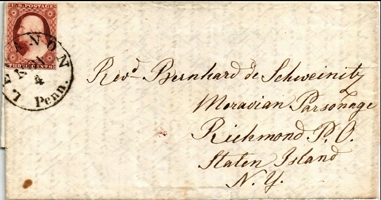 U.S. POSTAGE
LEBANON
4
Penn.
Revd. Bernhard de Schweinitz
Moravian Parsonage
Richmond P.O.
Staten Island
N.Y.